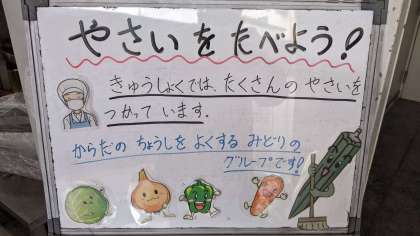 やさいをたべよう!
きゅうしょくでは、たくさんの やさいを
つかって います.
からだの ちょうしを よくする みどりの
グループです!